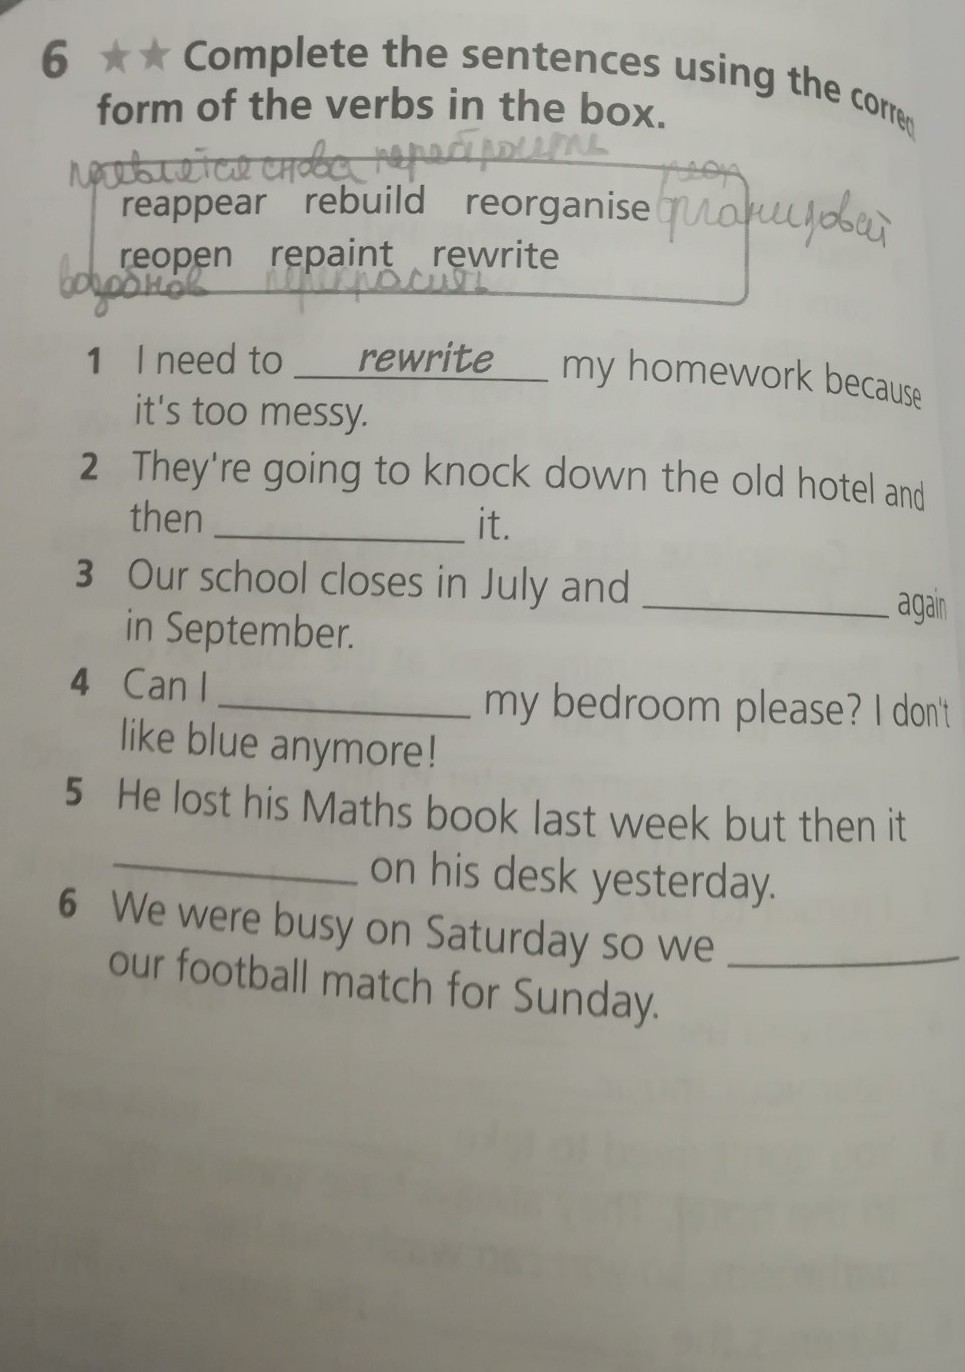 6 ★★ Complete the sentences using the correc
form of the verbs in the box.
снова перестроить
reappear rebuild reorganise
reopen repaint rewrite
перекрасить
1 I need to rewrite my homework because
it's too messy.
2 They're going to knock down the old hotel and
then ____________ it.
3 Our school closes in July and ____________ again
in September.
4 Can I ____________ my bedroom please? I don't
like blue anymore!
5 He lost his Maths book last week but then it
____________ on his desk yesterday.
6 We were busy on Saturday so we ____________
our football match for Sunday.